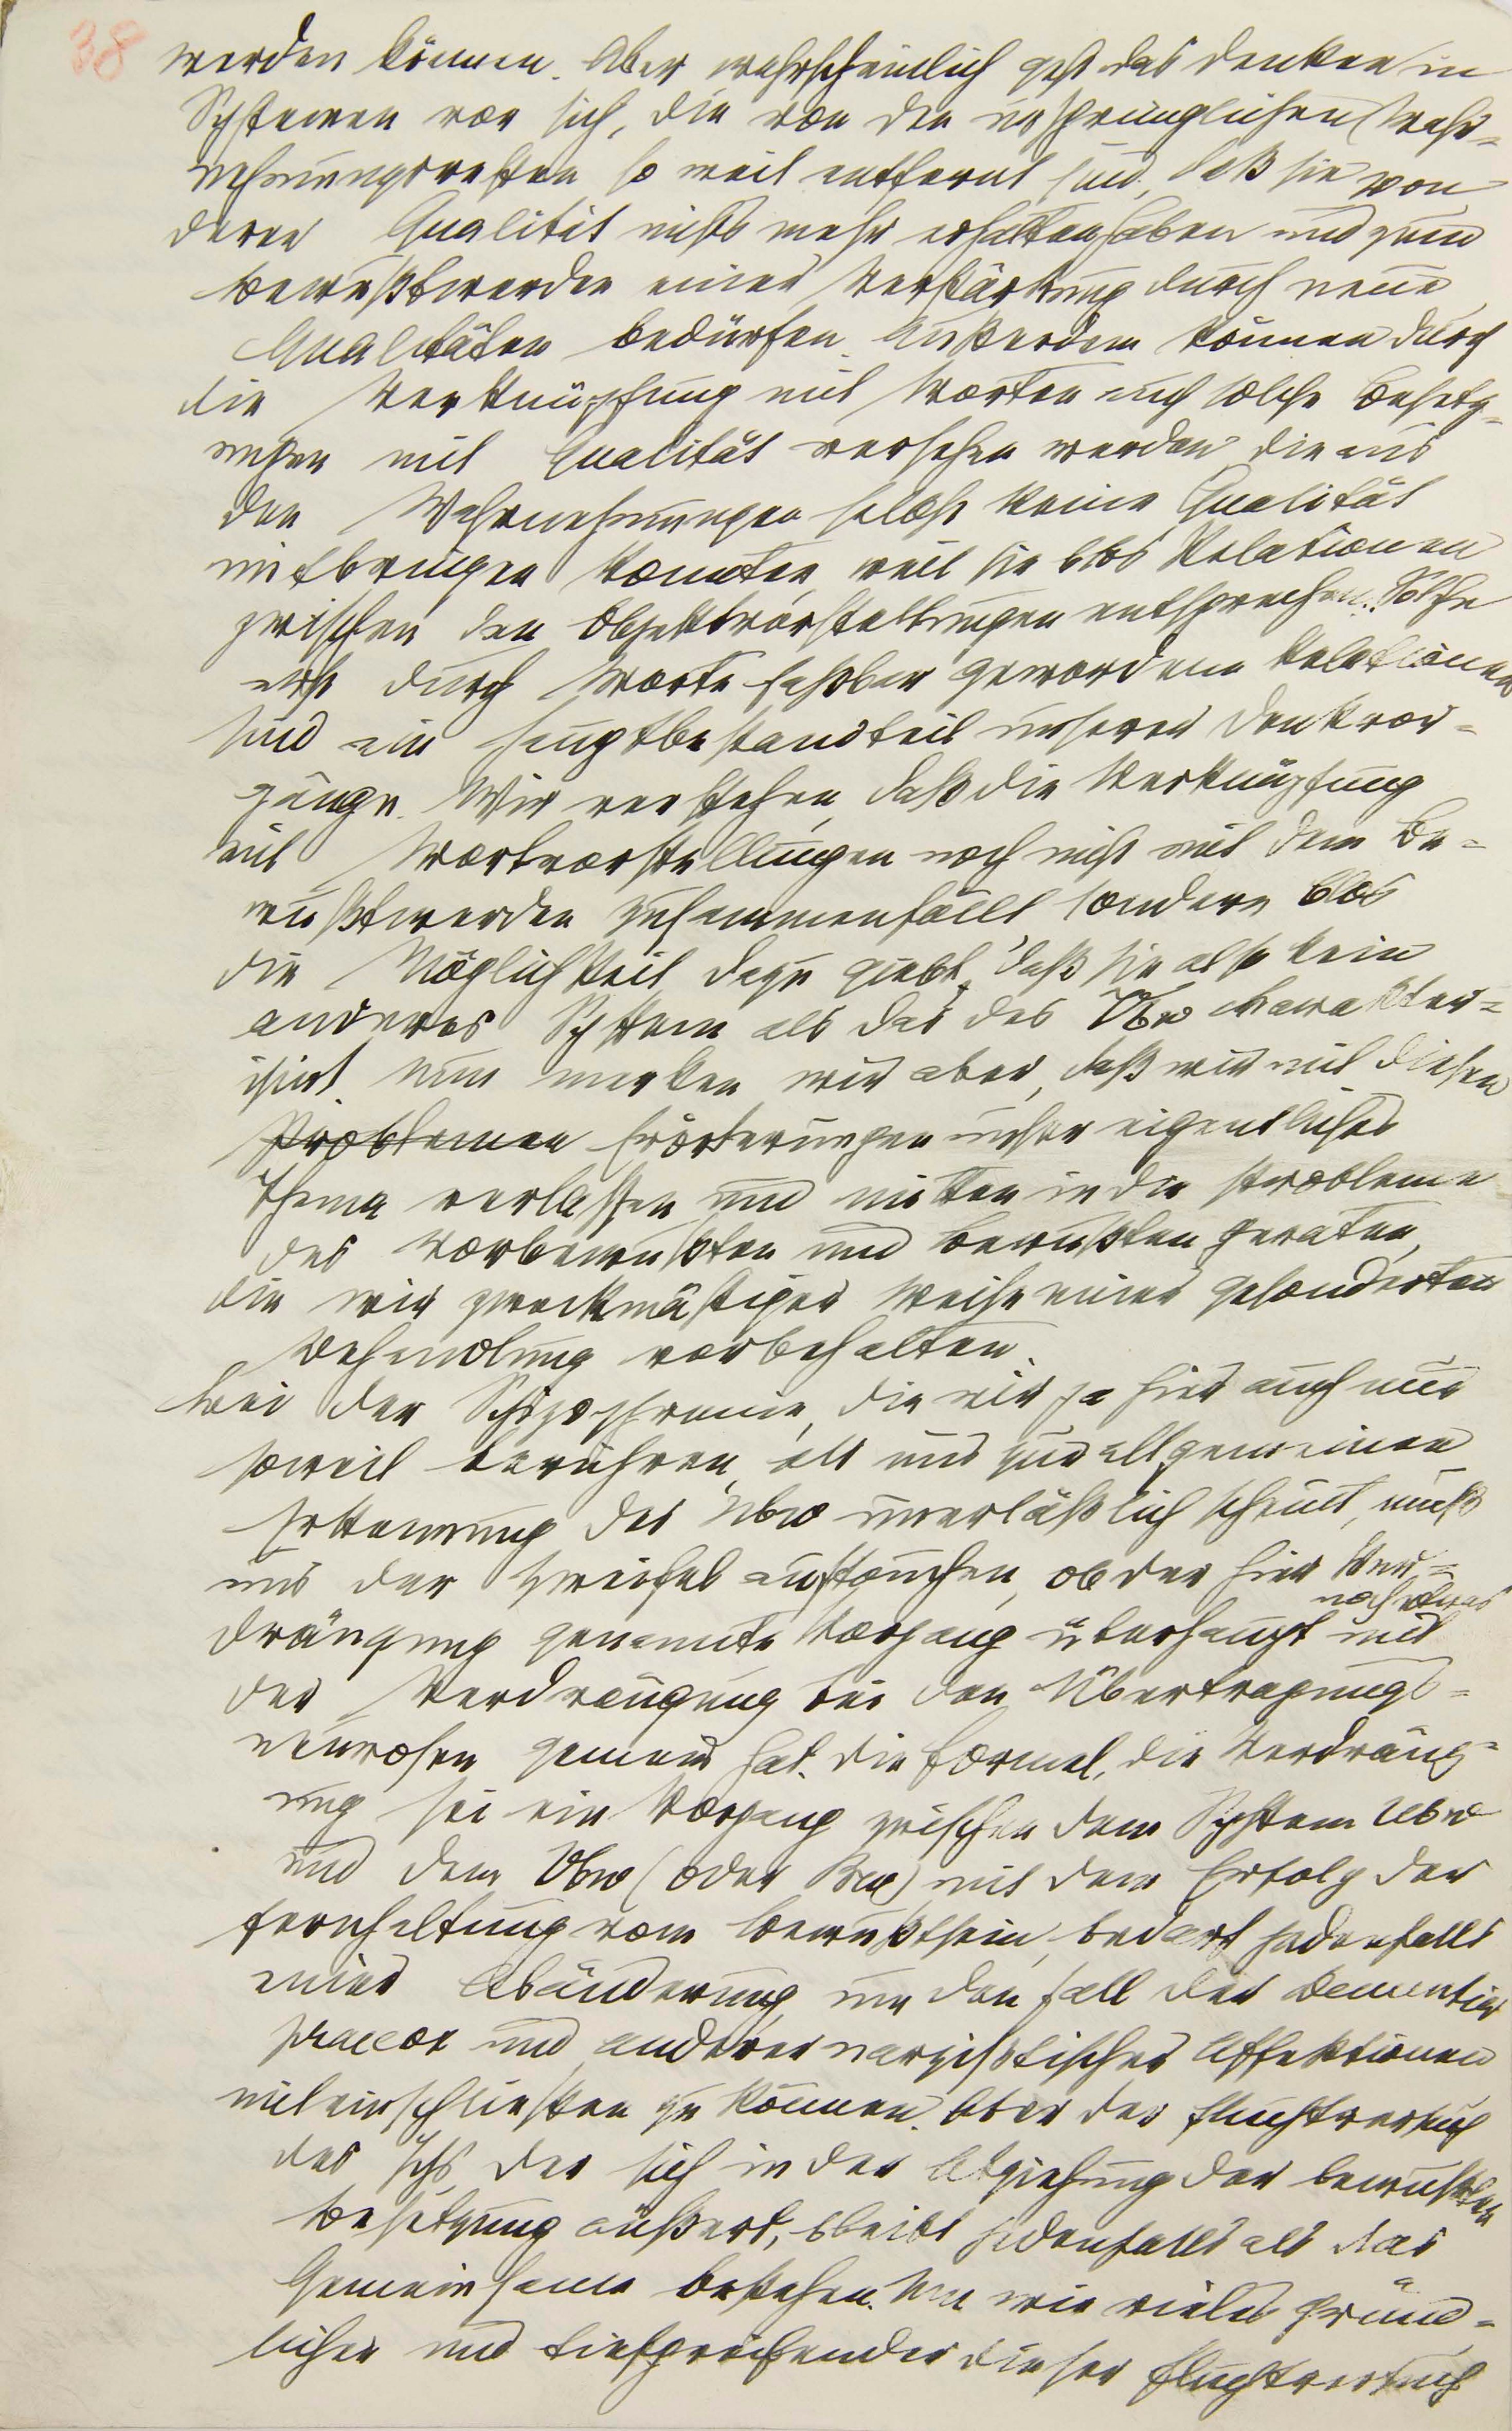 38
werden können. Aber wahrscheinlich geht das Denken in
Systemen vor sich, die von den ursprünglichen Wahr-
nehmungsresten so weit entfernt sind, daß sie von
deren Qualität nichts mehr erhalten haben und zum
Bewußtwerden einer Verstärkung durch neue
Qualitäten bedürfen. Außerdem können durch
die Verknüpfung mit Worten auch solche Besetz-
ungen mit Qualität versehen werden, die aus
den Wahrnehmungen selbst keine Qualität
mitbringen konnten, weil sie blos Relationen
zwischen den Objektvorstellungen entsprechen. Solche
erst durch Worte faßbar gewordene Relationen
sind ein Hauptbestandteil unserer Denkvor-
gänge. Wir verstehen, daß die Verknüpfung
mit Wortvorstellungen noch nicht mit dem Be-
wußtwerden zusammenfällt, sondern blos
die Möglichkeit dazu giebt, daß sie also kein
anderes System als das des Vbw charakter-
isirt. Nun merken wir aber, daß wir mit diesen
Problemen Erörterungen unser eigentliches
Thema verlassen und mitten in die Probleme
des Vorbewußten und Bewußten geraten,
die wir zweckmäßiger Weise einer gesonderten
Behandlung vorbehalten.
Bei der Schizophrenie, die wir ja hier auch nur
soweit berühren, als uns zur allgemeinen
Erkennung des Ubw unerläßlich scheint, muß
uns der Zweifel auftauchen, ob der hier Ver-
noch etwas
drängung genannte Vorgang überhaupt mit
der Verdrängung bei den Übertragungs-
neurosen gemein hat. Die Formel, die Verdräng-
ung sei ein Vorgang zwischen dem System Ubw
und dem Vbw (oder Bw) mit dem Erfolg der
Fernhaltung vom Bewußtsein, bedarf jedenfalls
einer Abänderung, um den Fall der Dementia
praecox und anderer narzißtischer Affektionen
miteinschließen zu können. Aber der Fluchtversuch
des Ichs, der sich in der Abziehung der bewußten
Besetzung äußert, bleibt jedenfalls als das
Gemeinsame bestehen. Um wie vieles gründ-
licher und tiefgreifender dieser Fluchtversuch